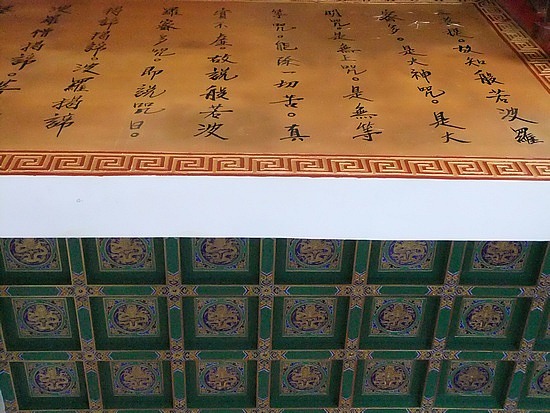 提。故知般若波羅
蜜多。是大神咒。是大
明咒是無上咒。是無等
等咒。能除一切苦。真
實不虛故說般若波
羅蜜多咒。即說咒曰。
揭諦揭諦。波羅揭諦
波羅僧揭諦。菩